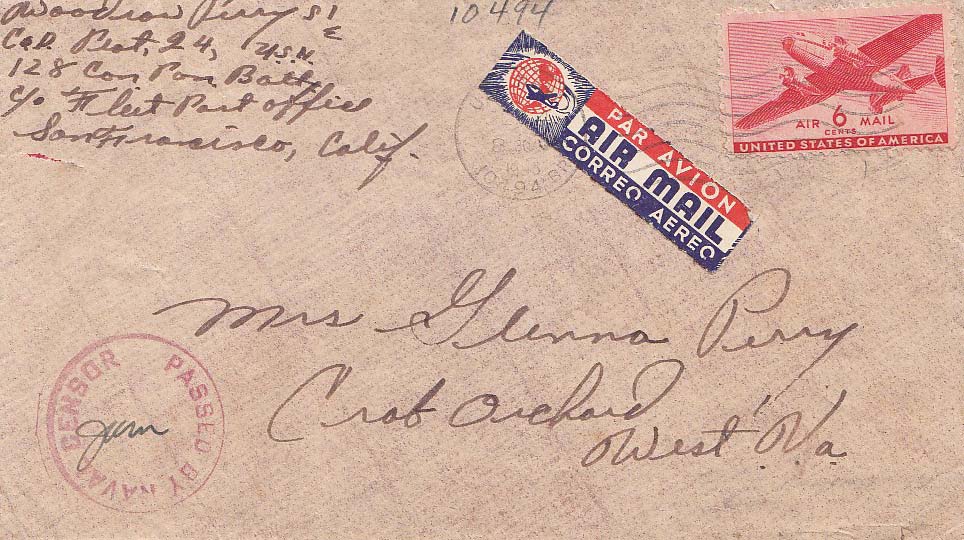 Woodrow Perry S1c
Co D. Plat. 24, U.S.N.
128 Con Pon Batt.
c/o Fleet Post office
San Francisco, Calif.
10494
PAR AVION
AIR MAIL
CORREO AEREO
AIR 6 MAIL
CENTS
UNITED STATES OF AMERICA
Mrs Glenna Perry
Crab Orchard
West. Va.
PASSED BY NAVAL CENSOR